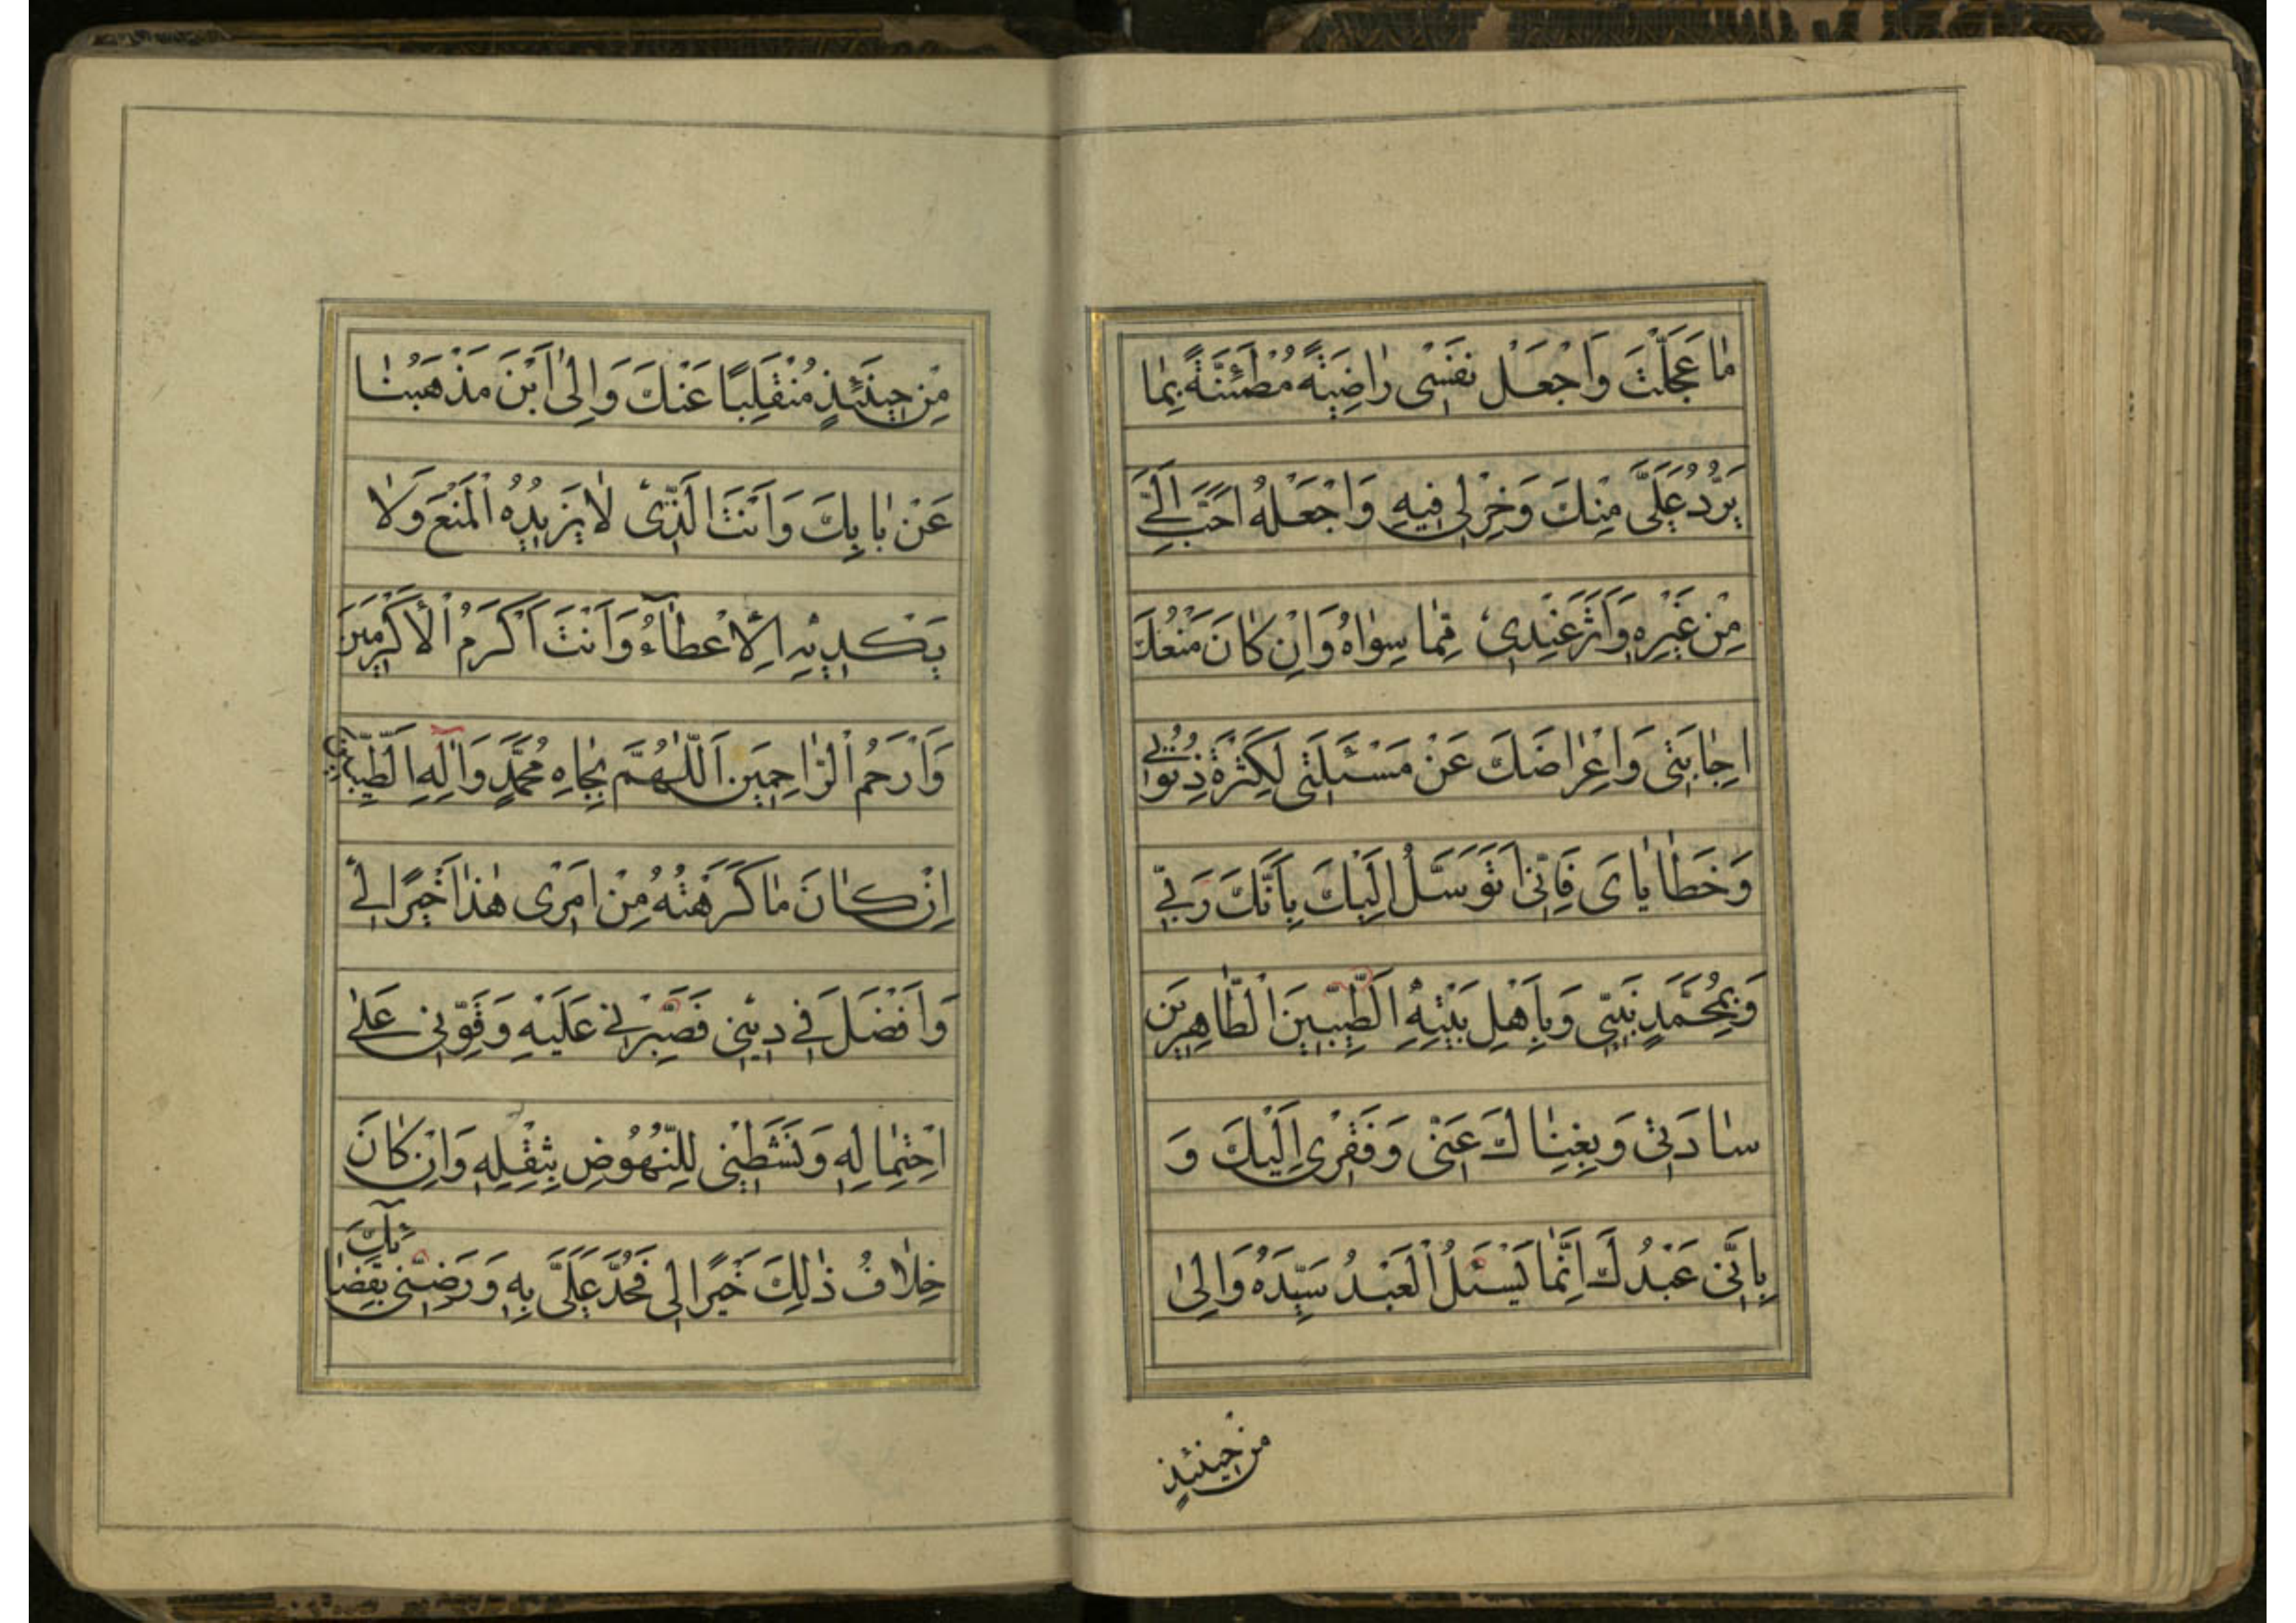 مٰا عَجَّلْتَ وَاجْعَلْ نَفْسِی رٰاضِيَةً مُطْمَئِنَّةً بِمٰا
يَرِدُ عَلَیَّ مِنْكَ وَخِرْ لِی فِيهِ وَاجْعَلْهُ اَحَبَّ اِلَیَّ
مِنْ غَيْرِهِ وَآثَرَ عِنْدِی مِمّٰا سِوٰاهُ وَاِنْ كٰانَ مَنْعُكَ
اِجٰابَتِی وَاِعْرٰاضُكَ عَنْ مَسْئَلَتِی لِكَثْرَةِ ذُنُوبِی
وَخَطٰايٰایَ فَاِنِّی اَتَوَسَّلُ اِلَيْكَ بِاَنَّكَ رَبِّی
وَبِمُحَمَّدٍ نَبِيِّی وَبِاَهْلِ بَيْتِهِ الطَّيِّبِينَ الطّٰاهِرِينَ
سٰادَتِی وَبِغِنٰاكَ عَنِّی وَفَقْرِی اِلَيْكَ وَ
بِاَنِّی عَبْدُكَ اِنَّمٰا يَسْئَلُ الْعَبْدُ سَيِّدَهُ وَاِلیٰ
مَنْ حِينَئِذٍ
مَنْ حِينَئِذٍ مُنْقَلَبًا عَنْكَ وَاِلیٰ اَيْنَ مَذْهَبُنٰا
عَنْ بٰابِكَ وَاَنْتَ الَّذِی لٰا يَزِيدُهُ الْمَنْعُ وَلٰا
يَكْدِيهِ الْاِعْطٰآءُ وَاَنْتَ اَكْرَمُ الْاَكْرَمِينَ
وَاَرْحَمُ الرّٰاحِمِينَ اَللّٰهُمَّ بِجٰاهِ مُحَمَّدٍ وَآلِهِ الطَّيِّبِينَ
اِنْ كٰانَ مٰا كَرِهْتُهُ مِنْ اَمْرِی هٰذٰا خَيْرًا لِی
وَاَفْضَلَ فِی دِينِی فَصَبِّرْنِی عَلَيْهِ وَقَوِّنِی عَلیٰ
احْتِمٰالِهِ وَنَشِّطْنِی لِلنُّهُوضِ بِثِقْلِهِ وَاِنْ كٰانَ
خِلٰافُ ذٰلِكَ خَيْرًا لِی فَجُدْ عَلَیَّ بِهِ وَرَضِّنِی بِقَضٰآئِكَ